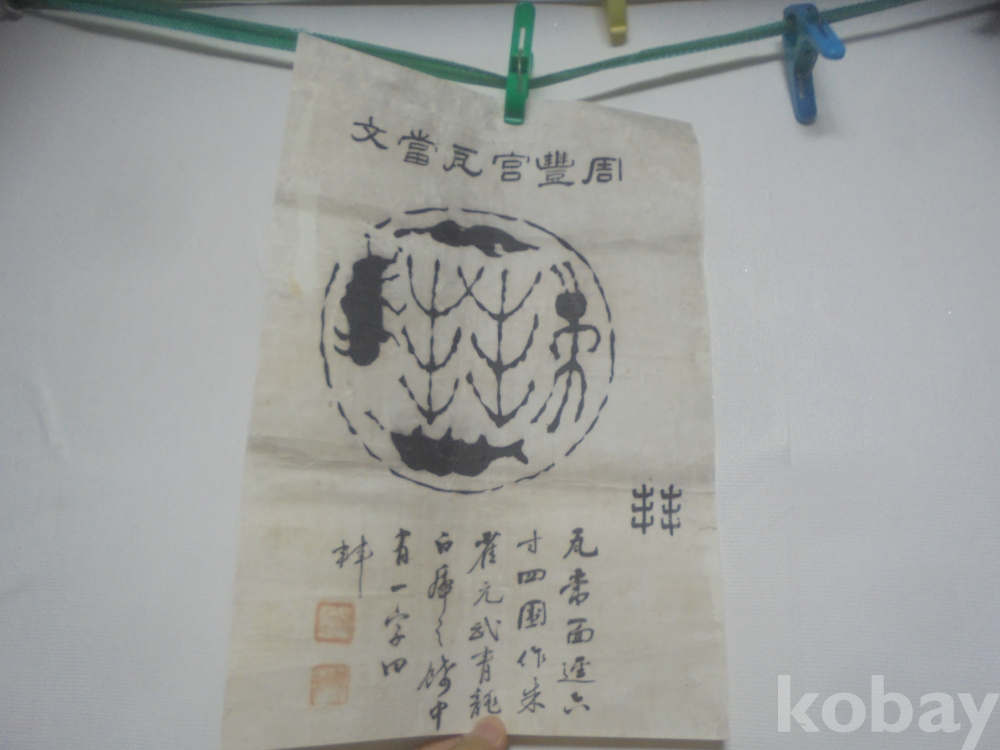 周豐宮瓦當文
瓦當面逕六
寸四圍作朱
雀元武青龍
白虎之餙中
有一字曰
丰丰
kobay